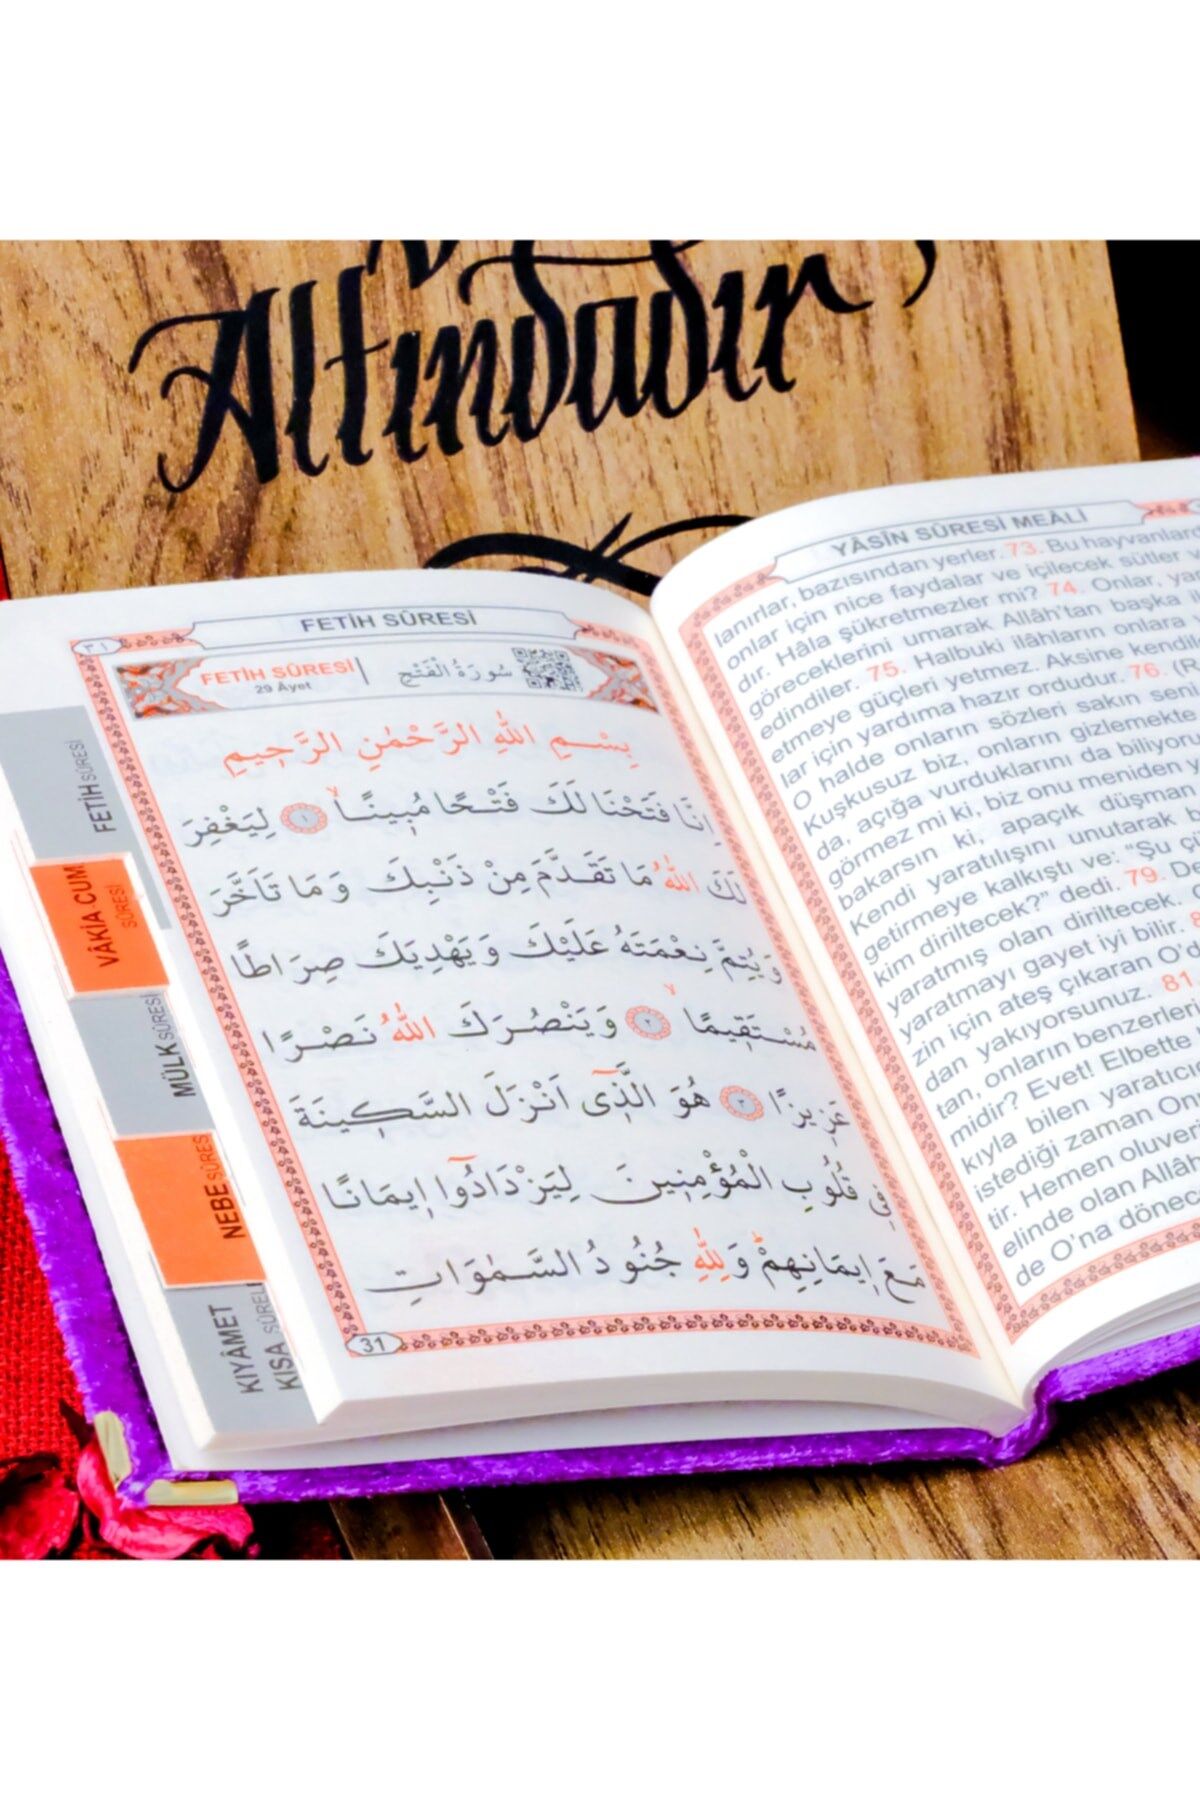 Altındadır
FETİH SÛRESİ
٣١
FETİH SÛRESİ
29 Âyet
سُورَةُ الْفَتْحِ
بِسْمِ اللهِ الرَّحْمٰنِ الرَّحِيمِ
اِنَّا فَتَحْنَا لَكَ فَتْحًا مُبِينًاۙ ١ لِيَغْفِرَ
لَكَ اللهُ مَا تَقَدَّمَ مِنْ ذَنْبِكَ وَمَا تَاَخَّرَ
وَيُتِمَّ نِعْمَتَهُ عَلَيْكَ وَيَهْدِيَكَ صِرَاطًا
مُسْتَقِيمًاۙ ٢ وَيَنْصُرَكَ اللهُ نَصْرًا
عَزِيزًا ٣ هُوَ الَّذِٓى اَنْزَلَ السَّكِينَةَ
فِى قُلُوبِ الْمُؤْمِنِينَ لِيَزْدَادُٓوا اِيمَانًا
مَعَ اِيمَانِهِمْۜ وَلِلّٰهِ جُنُودُ السَّمٰوَاتِ
31
FETİH SÛRESİ
VÂKIA CUM
SÛRESİ
MÜLK SÛRESİ
NEBE SÛRES
KIYÂMET
KISA SÛREL
YÂSİN SÛRESİ MEÂLİ
lanırlar, bazısından yerler. 73. Bu hayvanlard
onlar için nice faydalar ve içilecek sütler
dır. Hâla şükretmezler mi? 74. Onlar, ya
göreceklerini umarak Allâh'tan başka
edindiler. 75. Halbuki ilâhların onlara
etmeye güçleri yetmez. Aksine kendil
lar için yardıma hazır ordudur. 76. (R
O halde onların sözleri sakın sen
Kuşkusuz biz, onların gizlemekte
da, açığa vurduklarını da biliyoru
görmez mi ki, biz onu meniden y
bakarsın ki, apaçık düşman
Kendi yaratılışını unutarak b
getirmeye kalkıştı ve: "Şu çi
kim diriltecek?" dedi. 79. De
yaratmış olan diriltecek.
yaratmayı gayet iyi bilir. 8
zin için ateş çıkaran O'd
dan yakıyorsunuz. 81
tan, onların benzerler
midir? Evet! Elbette
kıyla bilen yaratıcıd
istediği zaman On
tir. Hemen oluveri
elinde olan Allâh
de O'na dönec